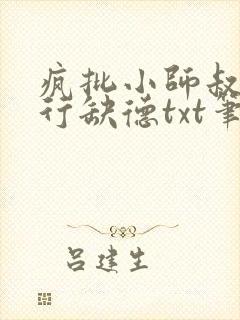 疯批小师叔
行缺德txt笔
吕建生